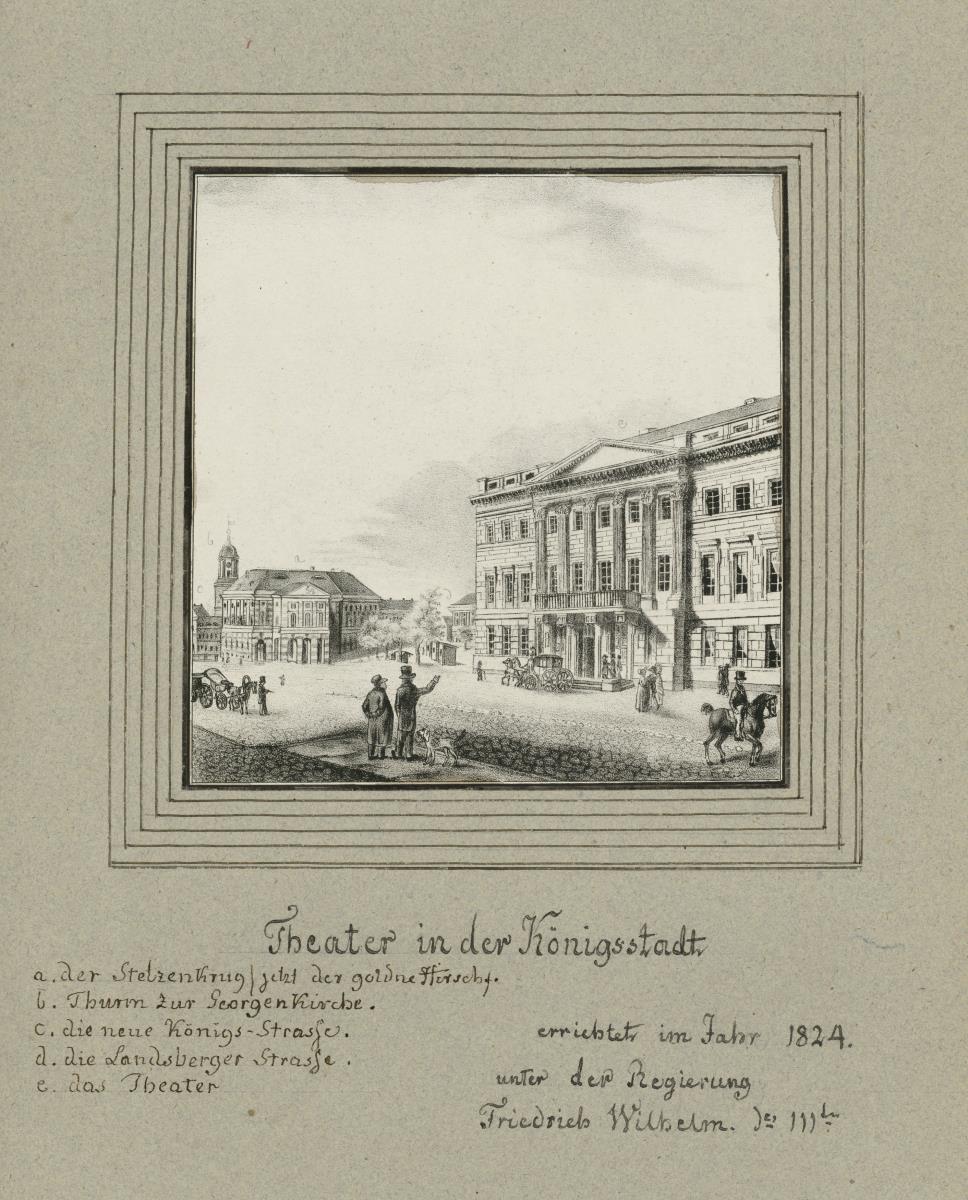 Theater in der Königsstadt
a. der Stelzenkrug / jetzt der goldne Hirsch /.
b. Thurm zur Georgenkirche.
c. die neue Königs-Strasse.
d. die Landsberger Strasse.
e. das Theater
errichtet im Jahr 1824.
unter der Regierung
Friedrich Wilhelm. des IIIten